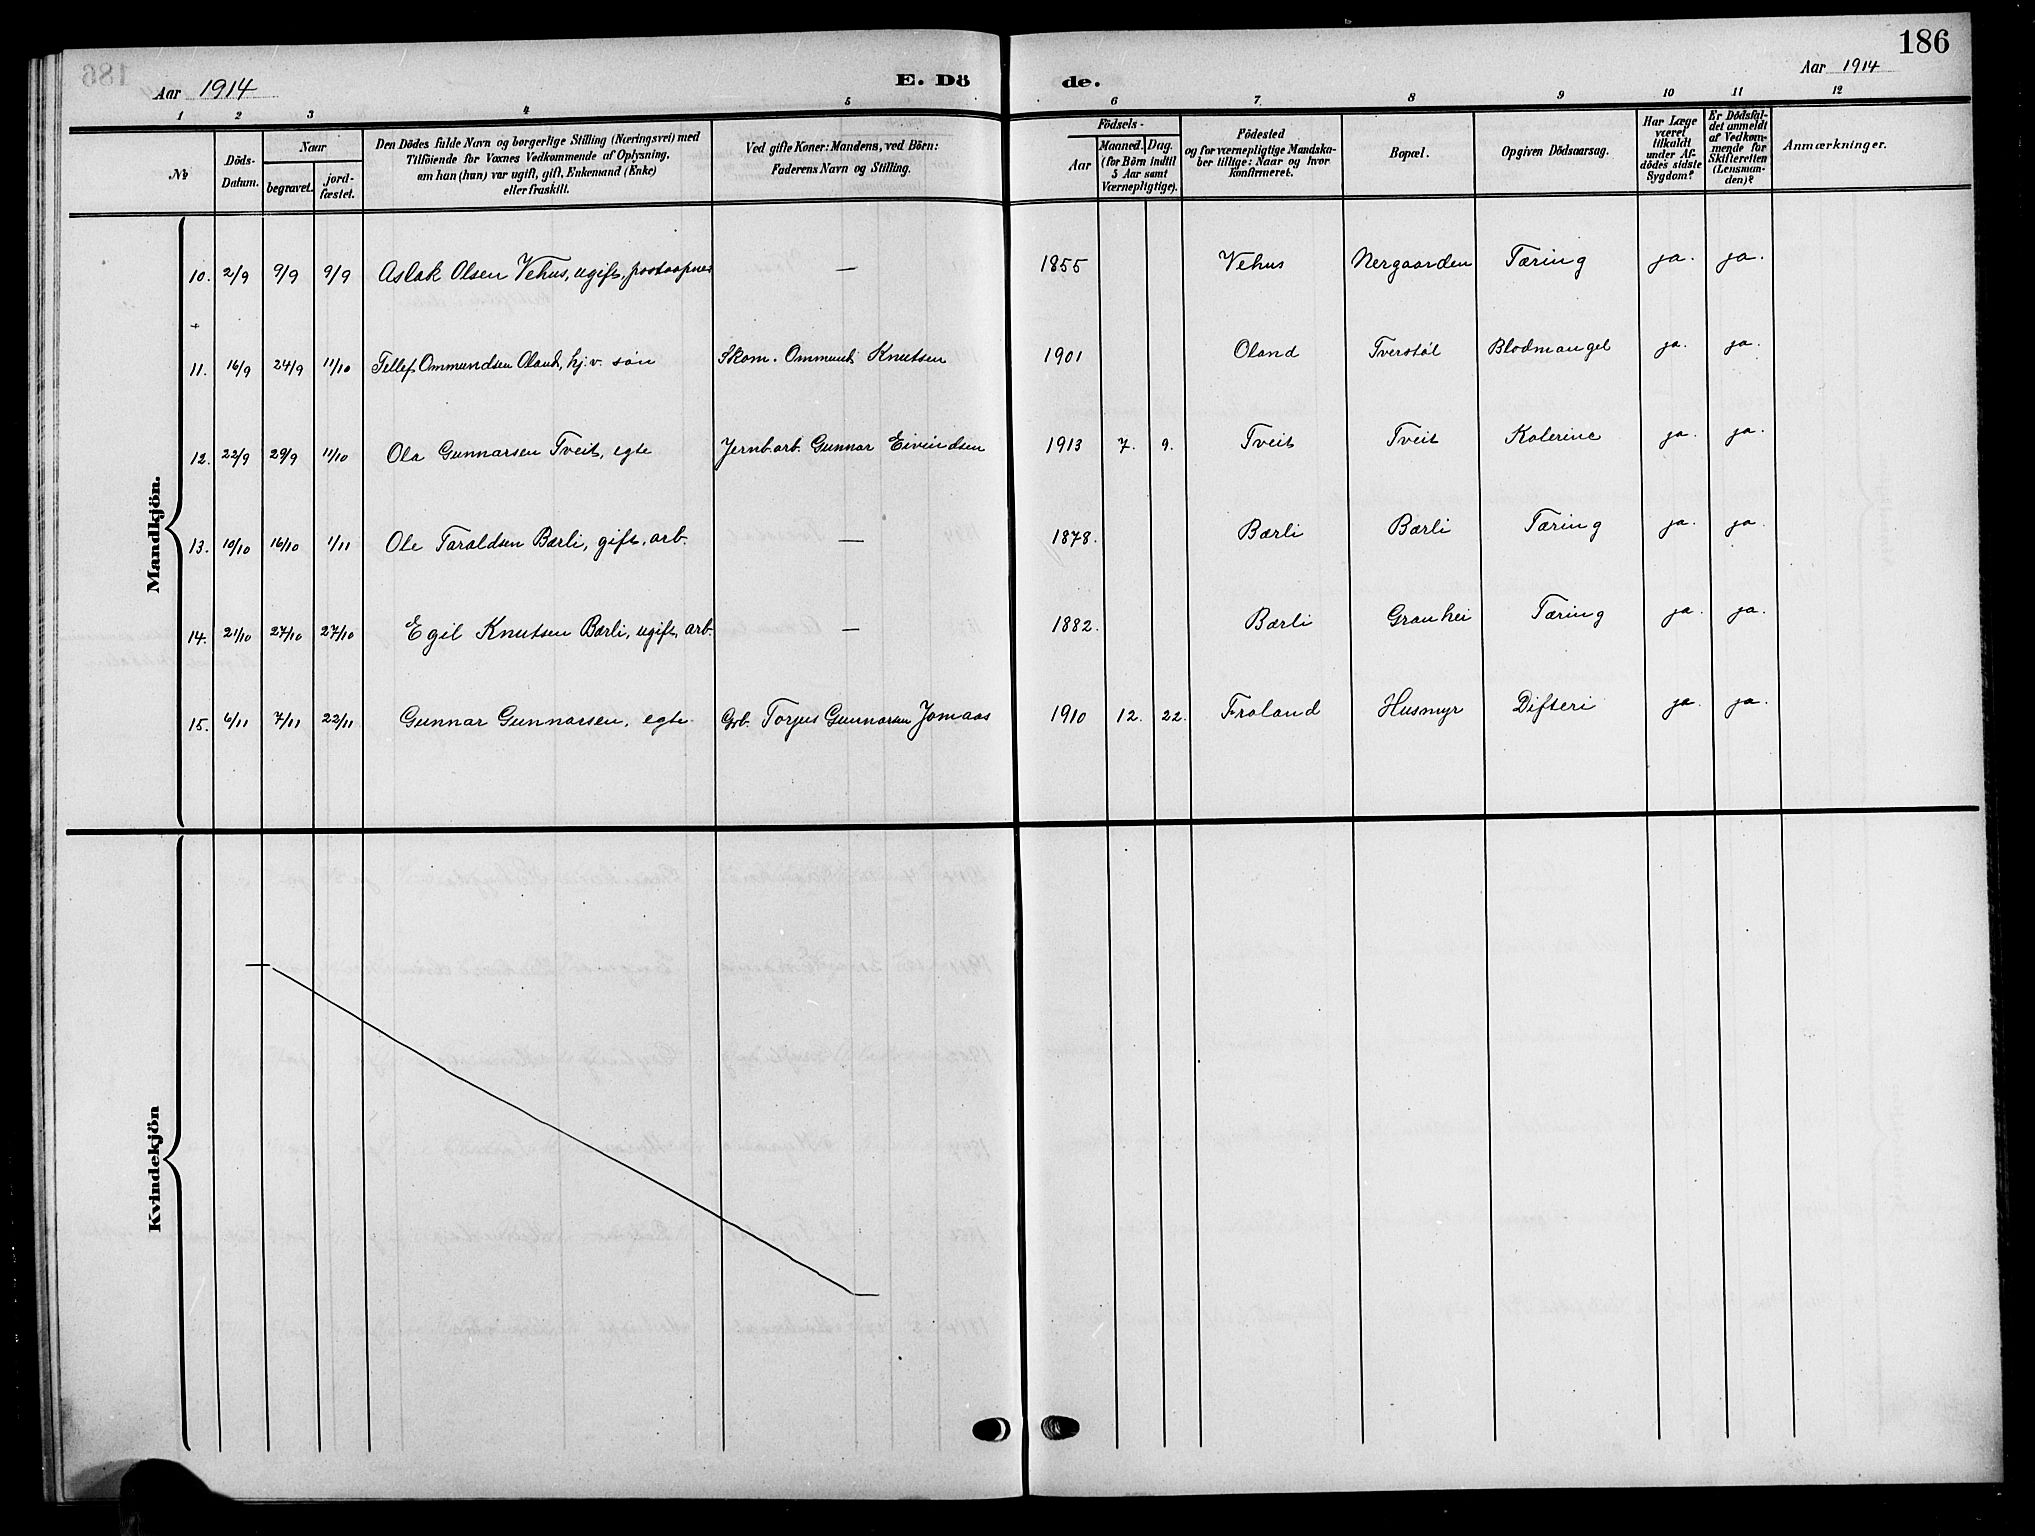 186
Aar 1914 E. Dö de. Aar 1914
1 2 3 4 5 6 7. 8 9 10 11 12
№
Döds-Datum.
Naar
begravet.
jord-fæstet.
Den Dödes fulde Navn og borgerlige Stilling (Næringsvei) med
Tilföiende for Voxnes Vedkommende af Oplysning,
om han (hun) var ugift, gift, Enkemand (Enke)
eller fraskilt.
Ved gifte Koner: Mandens, ved Börn:
Faderens Navn og Stilling.
Födsels-
Aar
Maaned. Dag.
(for Börn indtil
5 Aar samt
Værnepligtige).
Födested
og for værnepligtige Mandska-
ber tillige: Naar og hvor
konfirmeret.
Bopæl.
Opgiven Dödsaarsag.
Har Læge
været
tilkaldt
under Af-
dödes sidste
Sygdom?
Er Dödsfal-
det anmeldt
af Vedkom-
mende for
Skifteretten
(Lensman-
den)?
Anmærkninger.
Mandkjön.
10. 2/9 9/9 9/9 Aslak Olsen Vehus, ugift, postaapner — 1855 Vehus Nergaarden Tæring ja. ja.
+
11. 16/9 24/9 11/10 Tellef Ommundsen Oland, hj. v. søn Skom. Ommund Knutsen 1901 Oland Tverstøl Blodmangel ja. ja.
12. 22/9 29/9 11/10 Ola Gunnarsen Tveit, egte Jernb.arb. Gunnar Eivindsen 1913 7. 9. Tveit Tveit Kolerine ja. ja.
13. 10/10 16/10 1/11 Ole Taraldsen Bærli, gift, arb. — 1878. Bærli Bærli Tæring ja. ja.
14. 21/10 27/10 27/10 Egil Knutsen Bærli, ugift, arb. — 1882. Bærli Granhei Tæring ja. ja.
15. 6/11 7/11 22/11 Gunnar Gunnarsen, egte. Gbr. Torjus Gunnarsen Jomaas 1910 12. 22. Froland Husmyr Difteri ja. ja.
Kvindekjön